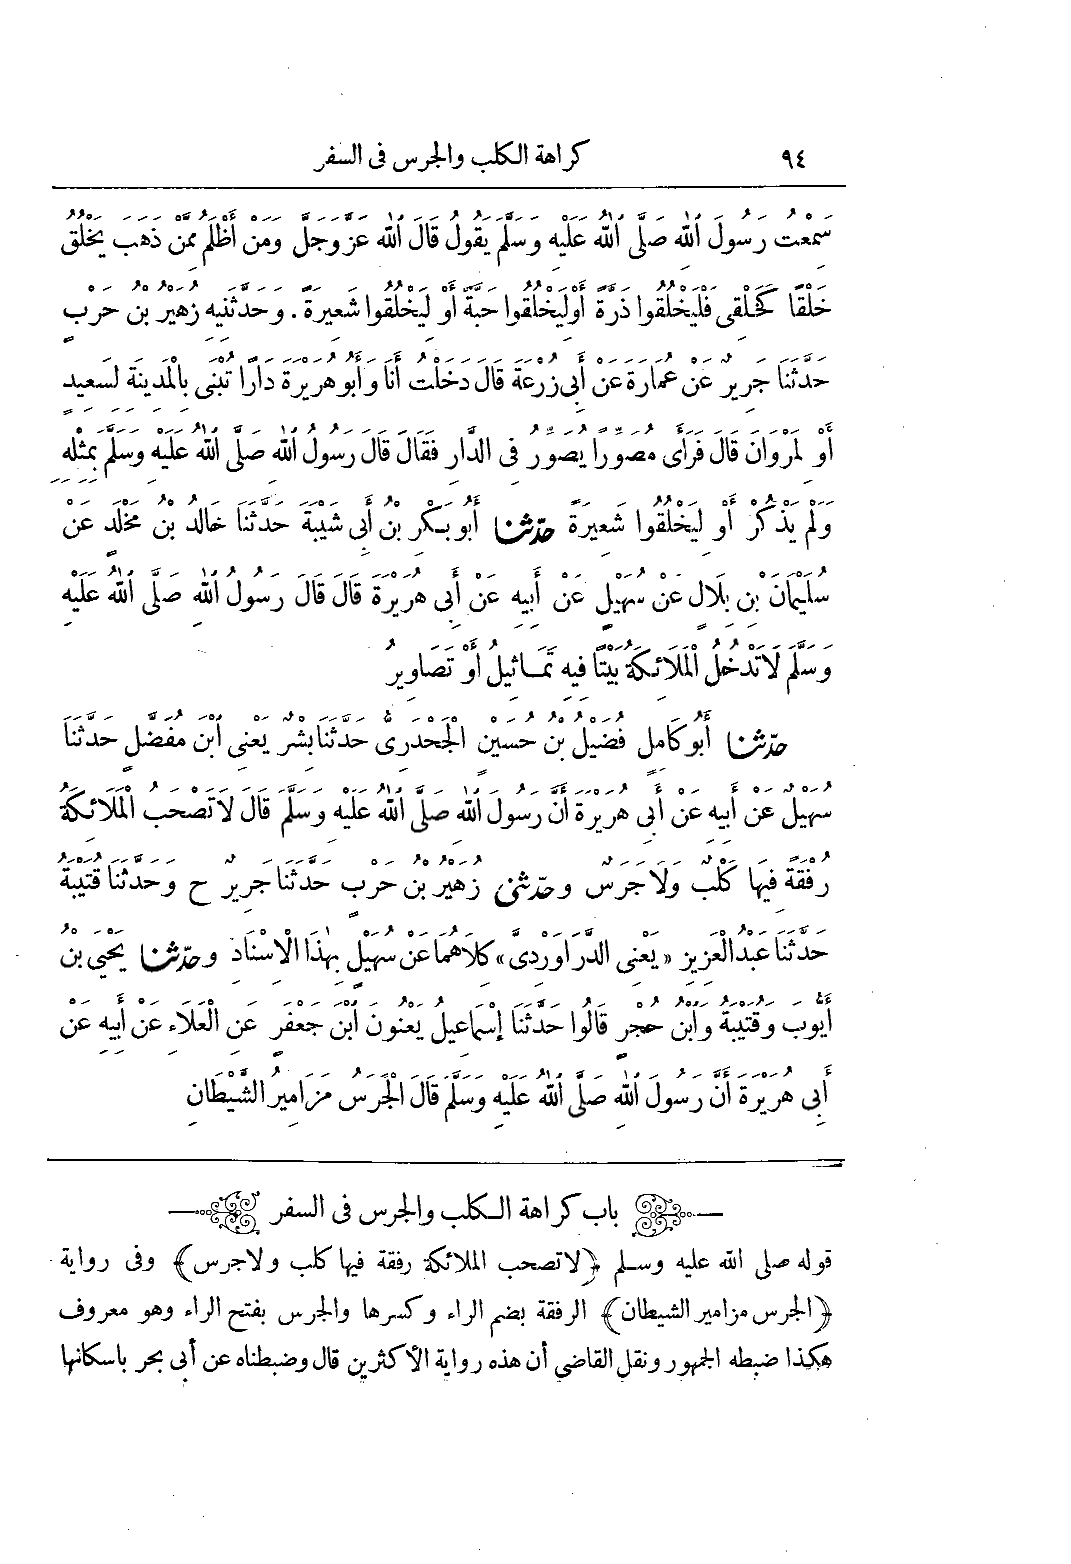 ٩٤ كراهة الكلب والجرس فى السفر
سَمِعْتُ رَسُولَ اللهِ صَلَّى اللهُ عَلَيْهِ وَسَلَّمَ يَقُولُ قَالَ اللهُ عَزَّ وَجَلَّ وَمَنْ أَظْلَمُ مِمَّنْ ذَهَبَ يَخْلُقُ
خَلْقًا كَخَلْقِى فَلْيَخْلُقُوا ذَرَّةً أَوْ لِيَخْلُقُوا حَبَّةً أَوْ لِيَخْلُقُوا شَعِيرَةً . وَحَدَّثَنِيهِ زُهَيْرُ بْنُ حَرْبٍ
حَدَّثَنَا جَرِيرٌ عَنْ عُمَارَةَ عَنْ أَبِى زُرْعَةَ قَالَ دَخَلْتُ أَنَا وَأَبُو هُرَيْرَةَ دَارًا تُبْنَى بِالْمَدِينَةِ لِسَعِيدٍ
أَوْ لِمَرْوَانَ قَالَ فَرَأَى مُصَوِّرًا يُصَوِّرُ فِى الدَّارِ فَقَالَ قَالَ رَسُولُ اللهِ صَلَّى اللهُ عَلَيْهِ وَسَلَّمَ بِمِثْلِهِ
وَلَمْ يَذْكُرْ أَوْ لِيَخْلُقُوا شَعِيرَةً حَدَّثَنَا أَبُو بَكْرِ بْنُ أَبِى شَيْبَةَ حَدَّثَنَا خَالِدُ بْنُ مَخْلَدٍ عَنْ
سُلَيْمَانَ بْنِ بِلَالٍ عَنْ سُهَيْلٍ عَنْ أَبِيهِ عَنْ أَبِى هُرَيْرَةَ قَالَ قَالَ رَسُولُ اللهِ صَلَّى اللهُ عَلَيْهِ
وَسَلَّمَ لَا تَدْخُلُ الْمَلَائِكَةُ بَيْتًا فِيهِ تَمَاثِيلُ أَوْ تَصَاوِيرُ
حَدَّثَنَا أَبُو كَامِلٍ فُضَيْلُ بْنُ حُسَيْنٍ الْجَحْدَرِىُّ حَدَّثَنَا بِشْرٌ يَعْنِى ابْنَ مُفَضَّلٍ حَدَّثَنَا
سُهَيْلٌ عَنْ أَبِيهِ عَنْ أَبِى هُرَيْرَةَ أَنَّ رَسُولَ اللهِ صَلَّى اللهُ عَلَيْهِ وَسَلَّمَ قَالَ لَا تَصْحَبُ الْمَلَائِكَةُ
رُفْقَةً فِيهَا كَلْبٌ وَلَا جَرَسٌ وَحَدَّثَنِى زُهَيْرُ بْنُ حَرْبٍ حَدَّثَنَا جَرِيرٌ ح وَحَدَّثَنَا قُتَيْبَةُ
حَدَّثَنَا عَبْدُ الْعَزِيزِ «يَعْنِى الدَّرَاوَرْدِىَّ» كِلَاهُمَا عَنْ سُهَيْلٍ بِهَذَا الْإِسْنَادِ وَحَدَّثَنَا يَحْيَى بْنُ
أَيُّوبَ وَقُتَيْبَةُ وَابْنُ حُجْرٍ قَالُوا حَدَّثَنَا إِسْمَاعِيلُ يَعْنُونَ ابْنَ جَعْفَرٍ عَنِ الْعَلَاءِ عَنْ أَبِيهِ عَنْ
أَبِى هُرَيْرَةَ أَنَّ رَسُولَ اللهِ صَلَّى اللهُ عَلَيْهِ وَسَلَّمَ قَالَ الْجَرَسُ مَزَامِيرُ الشَّيْطَانِ
باب كراهة الكلب والجرس فى السفر
قوله صلى الله عليه وسلم ﴿لا تصحب الملائكة رفقة فيها كلب ولا جرس﴾ وفى رواية
﴿الجرس مزامير الشيطان﴾ الرفقة بضم الراء وكسرها والجرس بفتح الراء وهو معروف
هكذا ضبطه الجمهور ونقل القاضى أن هذه رواية الأكثرين قال وضبطناه عن أبى بحر باسكانها